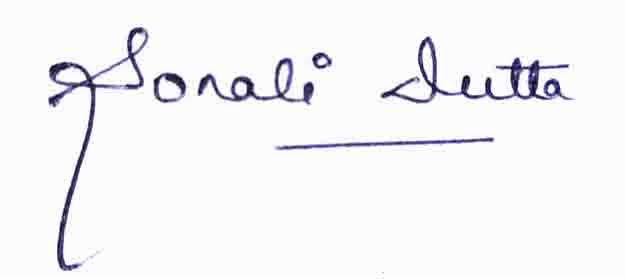 Sonali Dutta